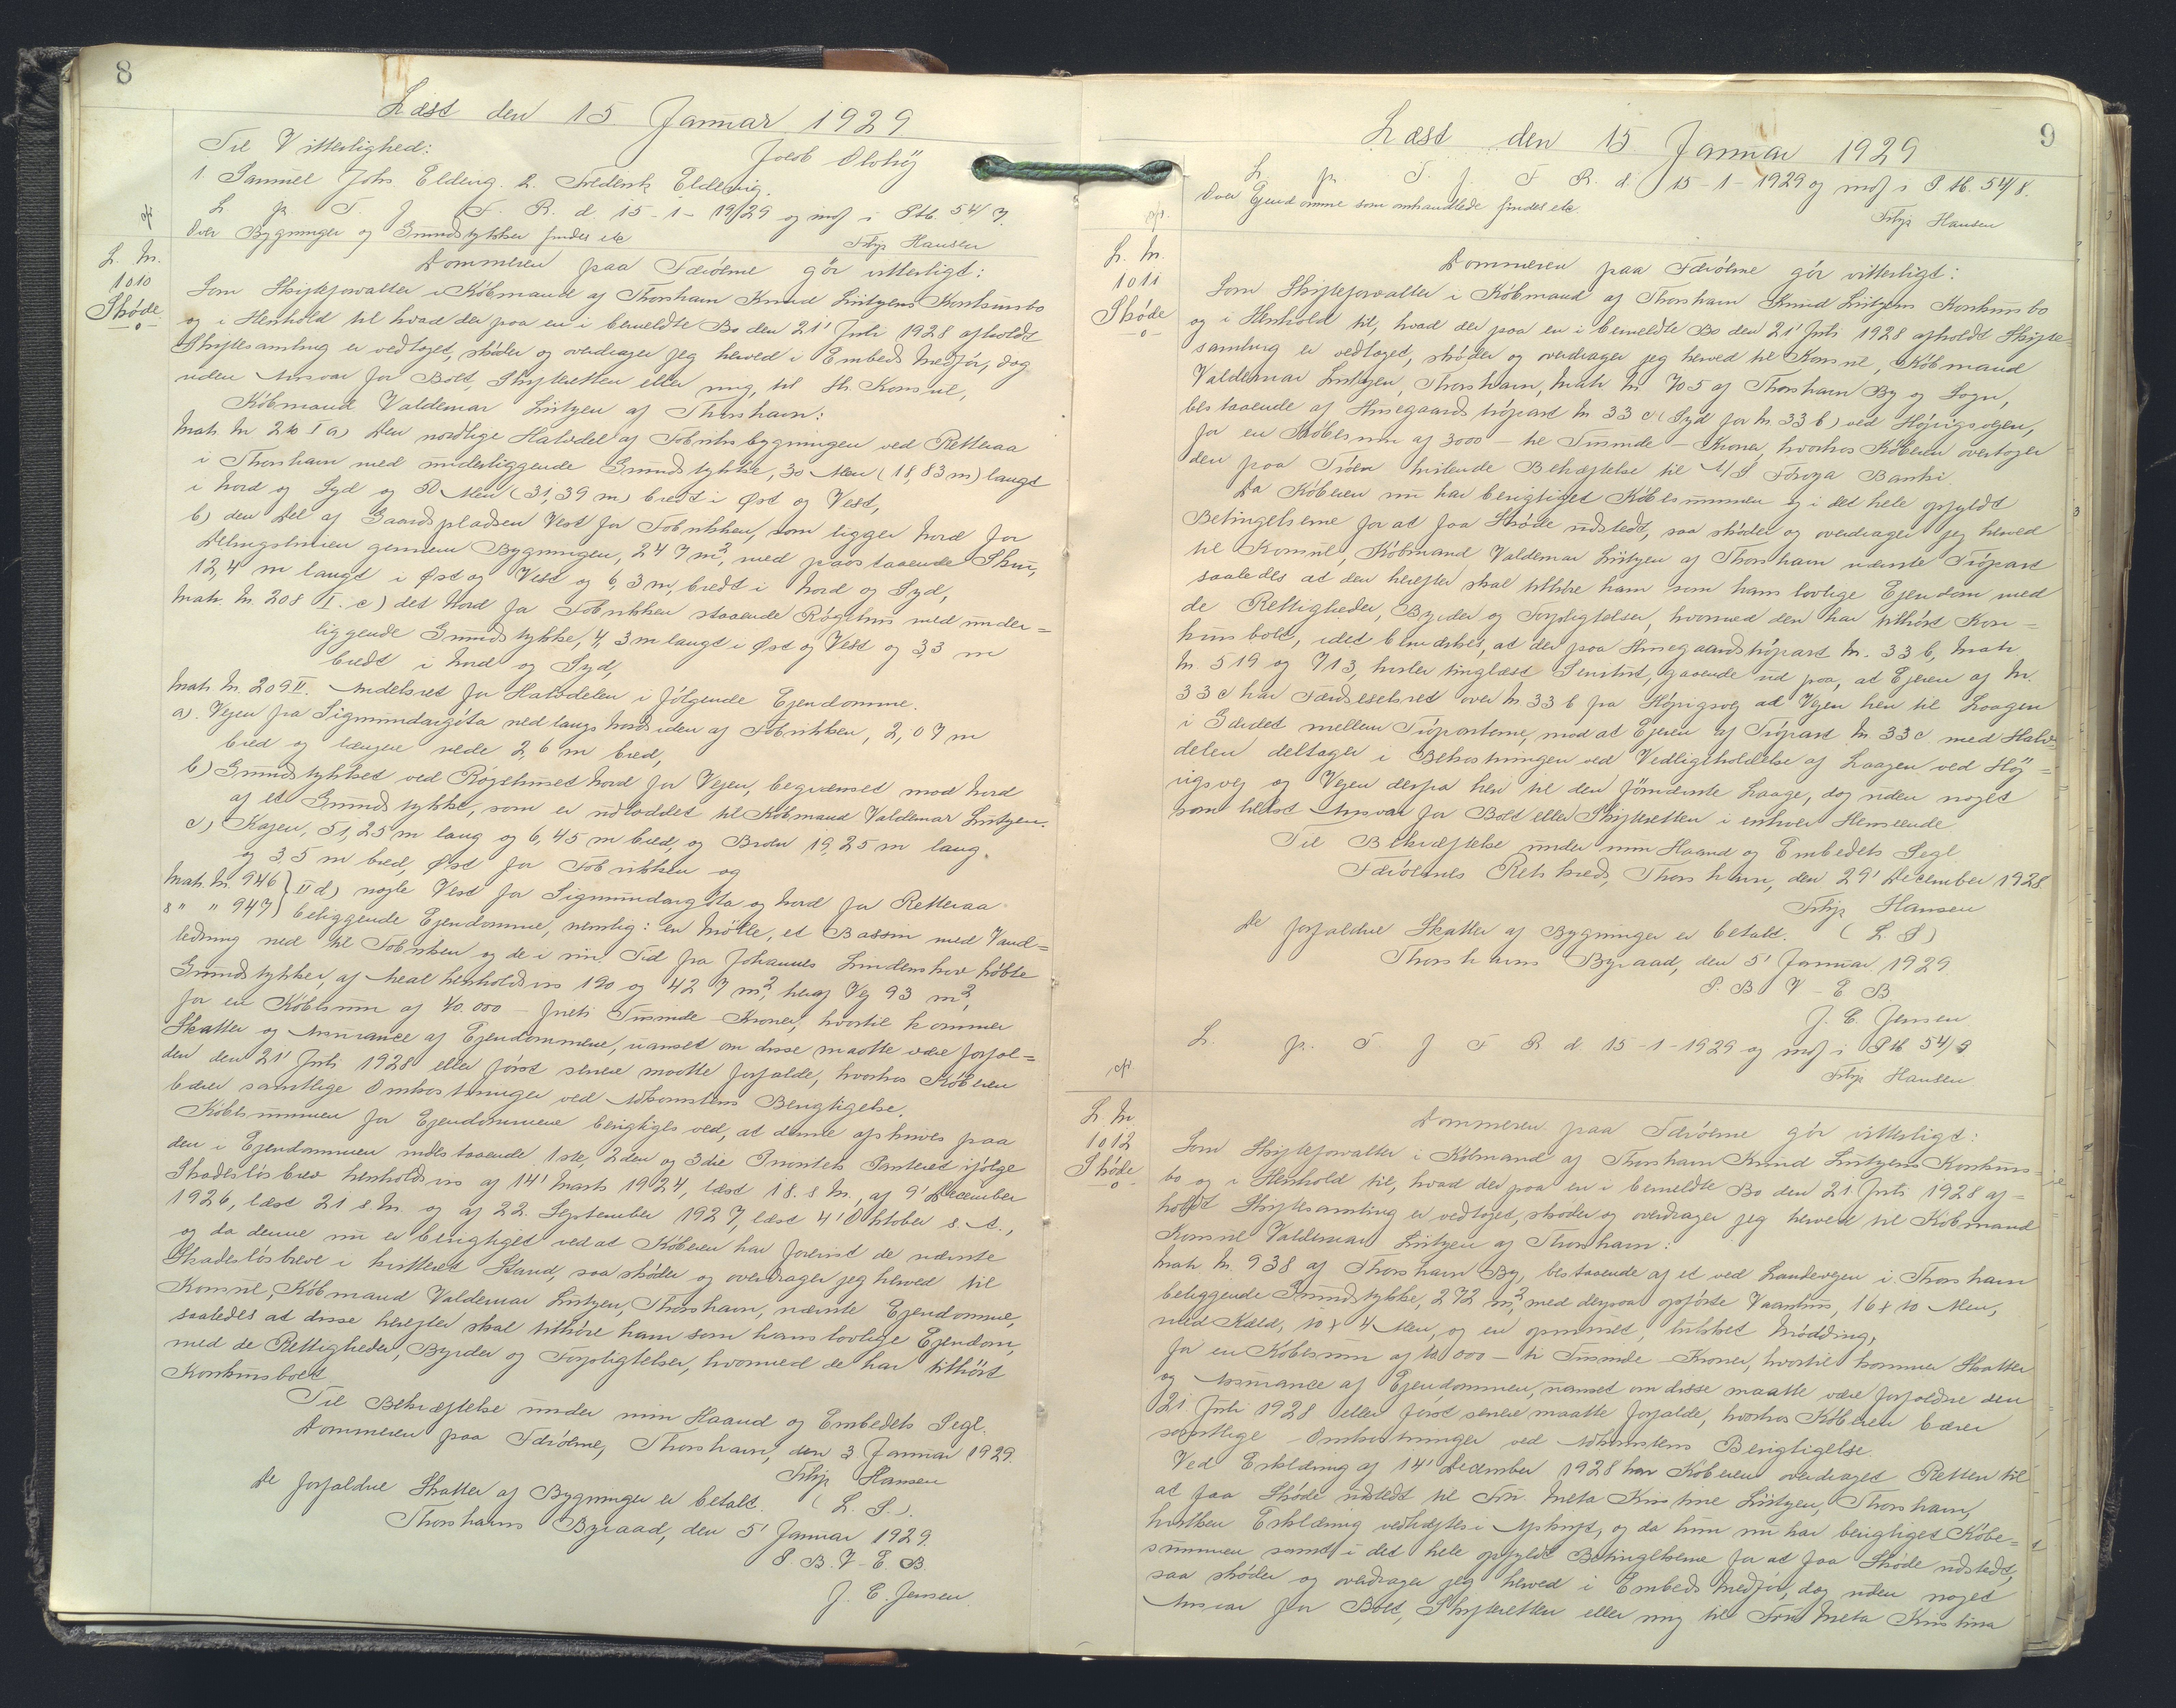 8
Læst den 15 Januar 1929
Til Vitterlighed:
Jacob Olvhøj
1. Samuel Johs Eldevig. 2. Frederik Eldevig.
L p T. J F. R. d. 15-1-1929 og indf i Ptb. 54/7.
Over Bygninger og Grundstykker findes etc
Filip Hansen
L. Nr.
1010
Skøde
Dommeren paa Færöerne gör vitterligt:
Som Skifteforvalter i Købmand af Thorshavn Knud Lützens Konkursbo
og i Henhold til hvad der paa en i bemeldte Bo den 21' Juli 1928 afholdt
Skiftesamling er vedtaget, skøder og overdrager jeg herved i Embeds Medför, dog
uden Ansvar for Boet, Skifteretten eller mig, til Hr. Konsul,
Købmand Valdemar Lützen af Thorshavn:
Matr. Nr. 210 I a) Den nordlige Halvdel af Fabriksbygningen ved Retteraa
i Thorshavn med underliggende Grundstykke, 30 Alen (18,83 m) langt
i Nord og Syd og 50 Alen (31,39 m) bredt i Øst og Vest,
b) den Del af Gaardspladsen Vest for Fabrikken, som ligger Nord for
Delingslinien gennem Bygningen, 247 m², med paastaaende Skur,
12,4 m langt i Øst og Vest og 6,3 m, bredt i Nord og Syd,
Matr. Nr. 208 I. c) det Nord for Fabrikken staaende Røgehus med under=
liggende Grundstykke, 4,3 m langt i Øst og Vest og 3,3 m
bredt i Nord og Syd,
Matr. Nr. 209 II. Andelsret for Halvdelen i følgende Ejendomme.
a). Vejen fra Sigmundargöta ned langs Nordsiden af Fabrikken, 2,07 m
bred og længere nede 2,6 m bred,
b) Grundstykket ved Røgehuset Nord for Vejen, begrænset mod Nord
af et Grundstykke, som er udloddet til Købmand Valdemar Lützen.
c) Kajen, 51,25 m lang og 6,45 m bred, og Broen 19,25 m lang
og 3,5 m bred, Øst for Fabrikken og
Matr. Nr. 946 } II d) nogle Vest for Sigmundargöta og Nord for Retteraa
8 " " 947 } beliggende Ejendomme, nemlig: en Mølle, et Bassin med Vand=
ledning ned til Fabrikken og de i sin Tid fra Johannes Lindenskov købte
Grundstykker, af Areal henholdsvis 190 og 427 m², heraf Vej 93 m²,
for en Købesum af 40.000 - firti Tusinde - Kroner, hvortil kommer
Skatter og Assurance af Ejendommene, uanset om disse maatte være forfal=
den den 21' Juli 1928 eller först senere maatte forfalde, hvorhos Køberen
bærer samtlige Omkostninger ved Adkomstens Berigtigelse.
Købesummen for Ejendommene berigtiges ved, at denne afskrives paa
den i Ejendommen indestaaende 1ste, 2den og 3die Prioritets Panteret ifølge
Skadesløsbrev henholdsvis af 14' Marts 1924, læst 18. s. M., af 9' December
1926, læst 21 s. M. og af 22. September 1927, læst 4' Oktober s. A.,
og da denne nu er berigtiget ved at Køberen har forevist de nævnte
Skadesløsbreve i kvitteret Stand, saa skøder og overdrager jeg herved til
Konsul, Købmand Valdemar Lützen, Thorshavn, nævnte Ejendomme,
saaledes at disse herefter skal tilhöre ham som hans lovlige Ejendom,
med de Rettigheder, Byrder og Forpligtelser, hvormed de har tilhört
Konkursboet
Til Bekræftelse under min Haand og Embedets Segl.
Dommeren paa Færöerne, Thorshavn, den 3 Januar 1929.
Filip Hansen
De forfaldne Skatter af Bygninger er betalt. (L. S.).
Thorshavns Byraad, den 5' Januar 1929.
P. B. V - E. B.
J. E. Jensen.
9
Læst den 15 Januar 1929
L p. T. J. F R. d. 15-1-1929 og indf i Ptb. 54/8.
Over Ejendomme som omhandlede findes etc.
Filip Hansen
L. Nr.
1011
Skøde
Dommeren paa Færöerne gör vitterligt:
Som Skifteforvalter i Købmand af Thorshavn Knud Lützens Konkursbo
og i Henhold til, hvad der paa en i bemeldte Bo den 21' Juli 1928 afholdt Skifte=
samling er vedtaget, skøder og overdrager jeg herved til Konsul, Købmand
Valdemar Lützen, Thorshavn, Matr. Nr. 705 af Thorshavn By og Sogn,
bestaaende af Husegaards tröpart Nr. 33 c (Syd for Nr. 33 b) ved Höjvigsvejen,
for en Købesum af 3000 - tre Tusinde - Kroner, hvorhos Køberen overtager
den paa Tröen hvilende Behæftelse til A/S Föroya Banki.
Da Køberen nu har berigtiget Købesummen og i det hele opfyldt
Betingelserne for at faa Skøde udstedt, saa skøder og overdrager jeg herved
til Konsul, Købmand Valdemar Lützen af Thorshavn nævnte Tröpart
saaledes at den herefter skal tilhöre ham som hans lovlige Ejendom med
de Rettigheder, Byrder og Forpligtelser, hvormed den har tilhört Kon=
kursboet, idet bemærkes, at der paa Husegaardströpart Nr. 33 b, Matr.
Nr 519 og 713, hviler tinglæst Servitut, gaaende ud paa, at Ejeren af Nr.
33 c har Færdselsret over Nr. 33 b fra Höjvigsvej ad Vejen hen til Laagen
i Gærdet mellem Tröparterne, mod at Ejeren af Tröpart Nr. 33 c med Halv=
delen deltager i Bekostningen ved Vedligeholdelse af Laagen ved Höj=
vigsvej og Vejen derfra hen til den förnævnte Laage, dog uden noget
som helst Ansvar for Boet eller Skifteretten i enhver Henseende
Til Bekræftelse under min Haand og Embedets Segl.
Færöernes Retskreds, Thorshavn, den 29' December 1928.
Filip Hansen
De forfaldne Skatter af Bygninger er betalt. (L. S)
Thorshavns Byraad, den 5' Januar 1929.
P. B V - E B.
J. E. Jensen
L. p. T. J F R d 15-1-1929 og indf i Ptb 54/9
Filip Hansen
L. Nr
1012
Skøde
Dommeren paa Færöerne gör vitterligt:
Som Skifteforvalter i Købmand af Thorshavn Knud Lützens Konkurs=
bo og i Henhold til, hvad der paa en i bemeldte Bo den 21. Juli 1928 af=
holdt Skiftesamling er vedtaget, skøder og overdrager jeg herved til Købmand
Konsul Valdemar Lützen af Thorshavn:
Matr. Nr. 938 af Thorshavn By, bestaaende af et ved Landevejen i Thorshavn
beliggende Grundstykke, 272 m², med derpaa opförte Vaanhus, 16 x 10 Alen,
med Kæld, 10 x 4 Alen, og en opmuret, Mødding,
for en Købesum af 10.000 - ti Tusinde Kroner, hvortil kommer Skatter
og Assurance af Ejendommen, uanset om disse maatte være forfaldne den
21. Juli 1928 eller först senere maatte forfalde, hvorhos Køberen bærer
samtlige Omkostninger ved Adkomstens Berigtigelse.
Ved Erklæring af 14' December 1928 har Køberen overdraget Retten til
at faa Skøde udstedt til Fru. Meta Kristine Lützen, Thorshavn,
hvilken Erklæring vedhæftes i Afskrift, og da hun nu har berigtiget Købe=
summen samt i det hele opfyldt Betingelserne for at faa Skøde udstedt,
saa skøder og overdrager jeg herved i Embeds Medför, dog uden noget
Ansvar for Boet, Skifteretten eller mig til Fru Meta Kristina